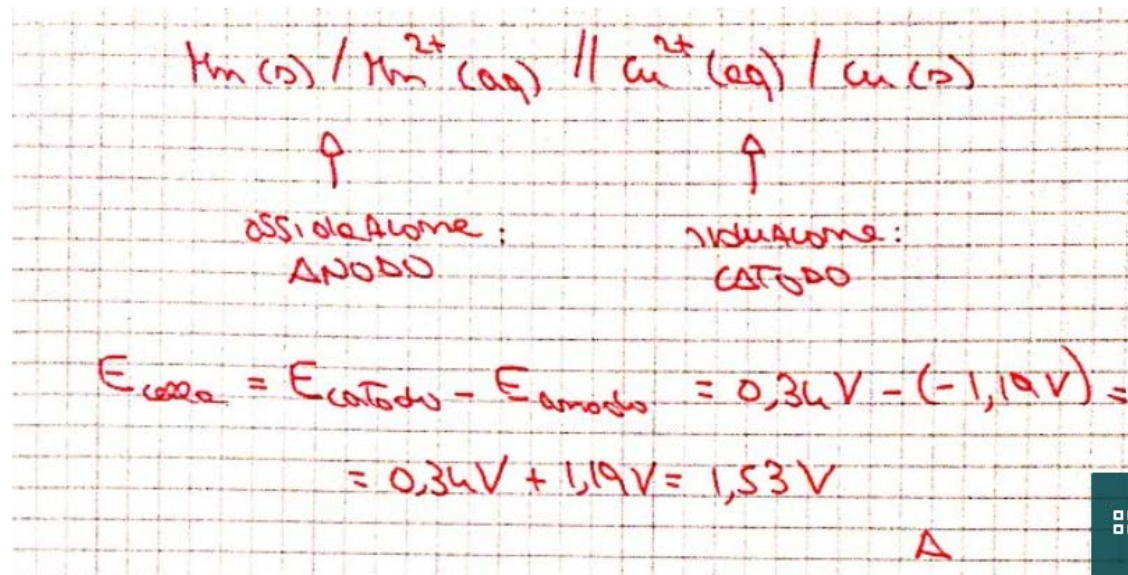 Mn (s) / Mn²⁺ (aq) // Cu²⁺ (aq) / Cu (s)
ossidazione: riduzione:
ANODO CATODO
Ecella = Ecatodo - Eanodo = 0,34V - (-1,19V) =
= 0,34V + 1,19V = 1,53V
A